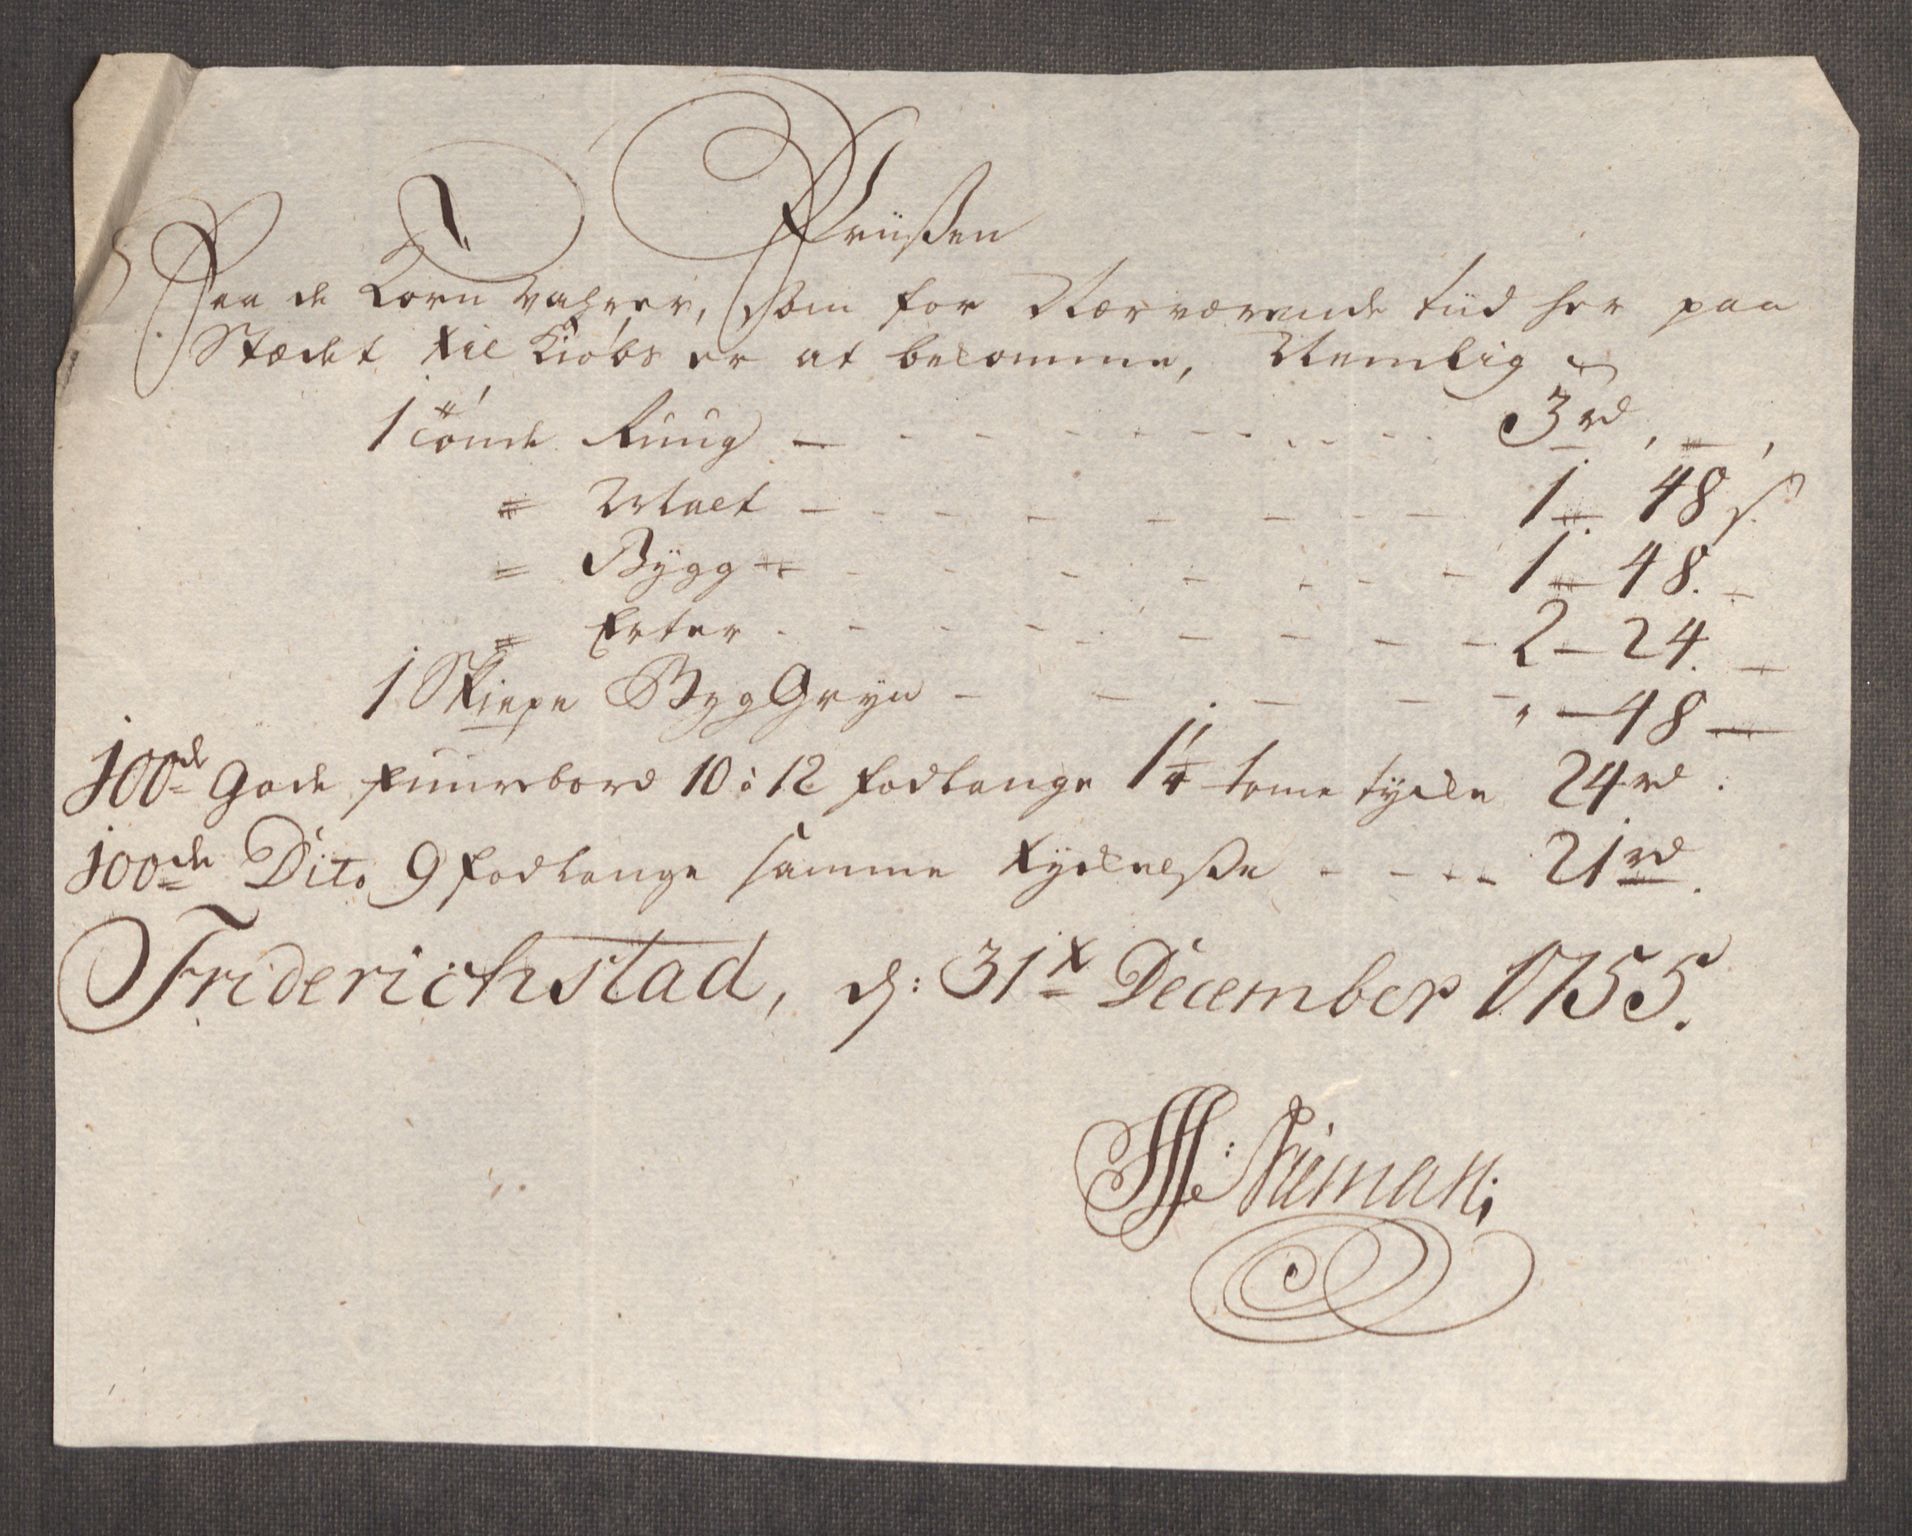 Priißen
Paa de Korn Vahrer, som for Nærværende tiid her paa
Stædet til Kiøbs er at bekomme, Nemlig
1 Tønde Ruug — 3 rd „ — „
= Malt — 1 — 48 s.
= Bÿgg — 1 — 48. —
= Erter — 2 — 24. —
1 Skiepe Byg Gryn — „ — 48 —
100de gode fuurebord 10 : 12 fodlange 1 1/4 tome tÿcke 24 rd.
100de Dito 9 fodlange samme tÿckelße - - - - 21 rd.
Friderichstad, d: 31te December 1755.